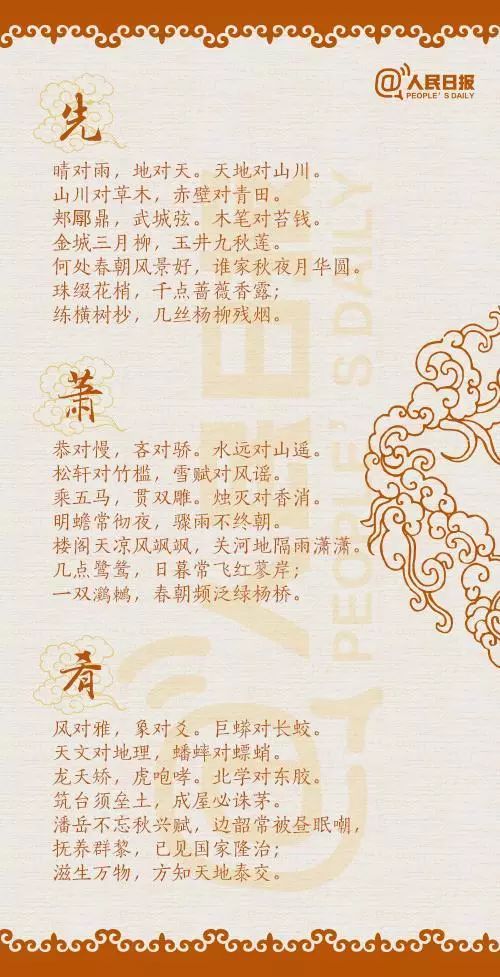 @人民日报
PEOPLE'S DAILY
先
晴对雨，地对天。天地对山川。
山川对草木，赤壁对青田。
郏鄏鼎，武城弦。木笔对苔钱。
金城三月柳，玉井九秋莲。
何处春朝风景好，谁家秋夜月华圆。
珠缀花梢，千点蔷薇香露；
练横树杪，几丝杨柳残烟。
萧
恭对慢，吝对骄。水远对山遥。
松轩对竹槛，雪赋对风谣。
乘五马，贯双雕。烛灭对香消。
明蟾常彻夜，骤雨不终朝。
楼阁天凉风飒飒，关河地隔雨潇潇。
几点鹭鸶，日暮常飞红蓼岸；
一双鸂鶒，春朝频泛绿杨桥。
肴
风对雅，象对爻。巨蟒对长蛟。
天文对地理，蟋蟀对螵蛸。
龙夭矫，虎咆哮。北学对东胶。
筑台须垒土，成屋必诛茅。
潘岳不忘秋兴赋，边韶常被昼眠嘲，
抚养群黎，已见国家隆治；
滋生万物，方知天地泰交。
@人民日报
PEOPLE'S DAILY